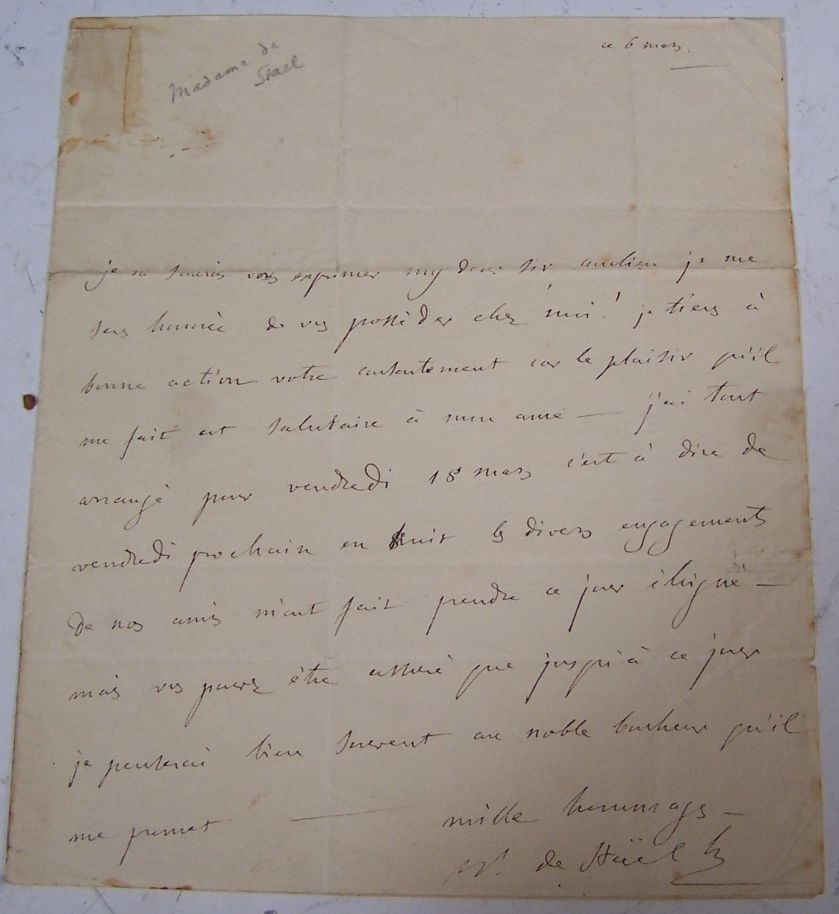 Madame de
Stael
ce 6 mars.
je ne saurais vous exprimer my dear sir combien je me
sens honorée de vous posséder chez moi! je tiens à
bonne action votre consentement car le plaisir qu'il
me fait est salutaire à mon ame — j'ai tout
arrangé pour vendredi 18 mars c'est à dire de
vendredi prochain en huit les divers engagements
de nos amis m'ont fait prendre ce jour éloigné —
mais vous pouvez être assuré que jusqu'à ce jour
je penserai bien souvent au noble bonheur qu'il
me promet — mille hommages —
de Staël h